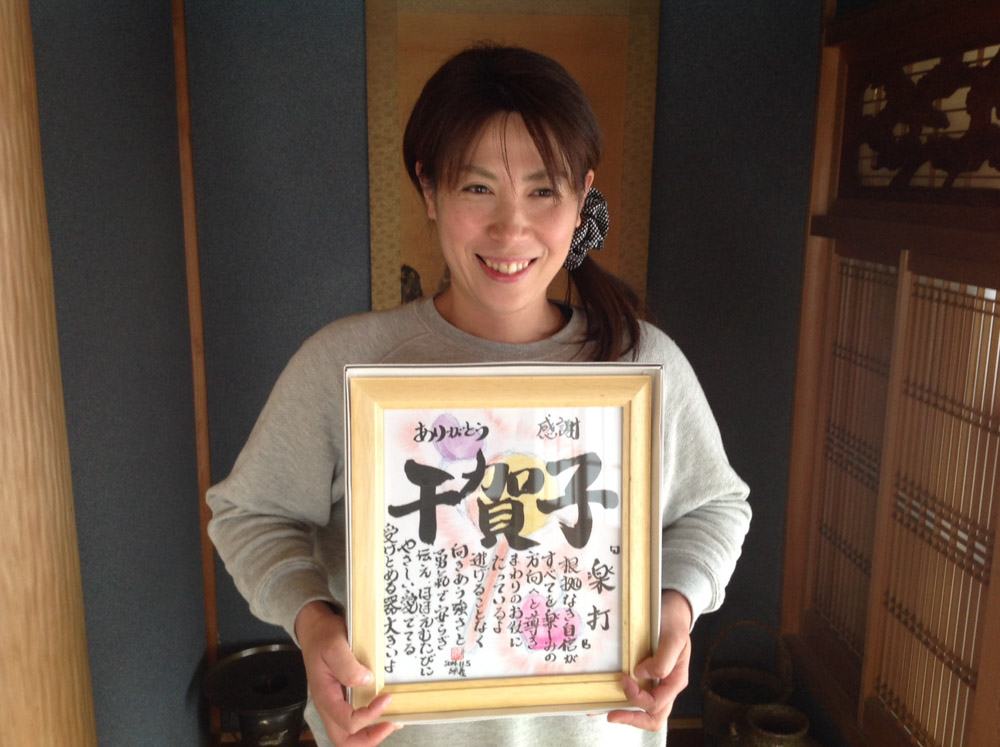 ありがとう 感謝
千賀子
『楽打』
根拠なき自信が
すべてを楽しみの
方向へと導き
まわりのお役に
たっているよ
逃げることなく
向きあう強さと
勇気で安らぎ
伝え ほほえむたびに
やさしい愛でてる
受けとめる器大きいよ